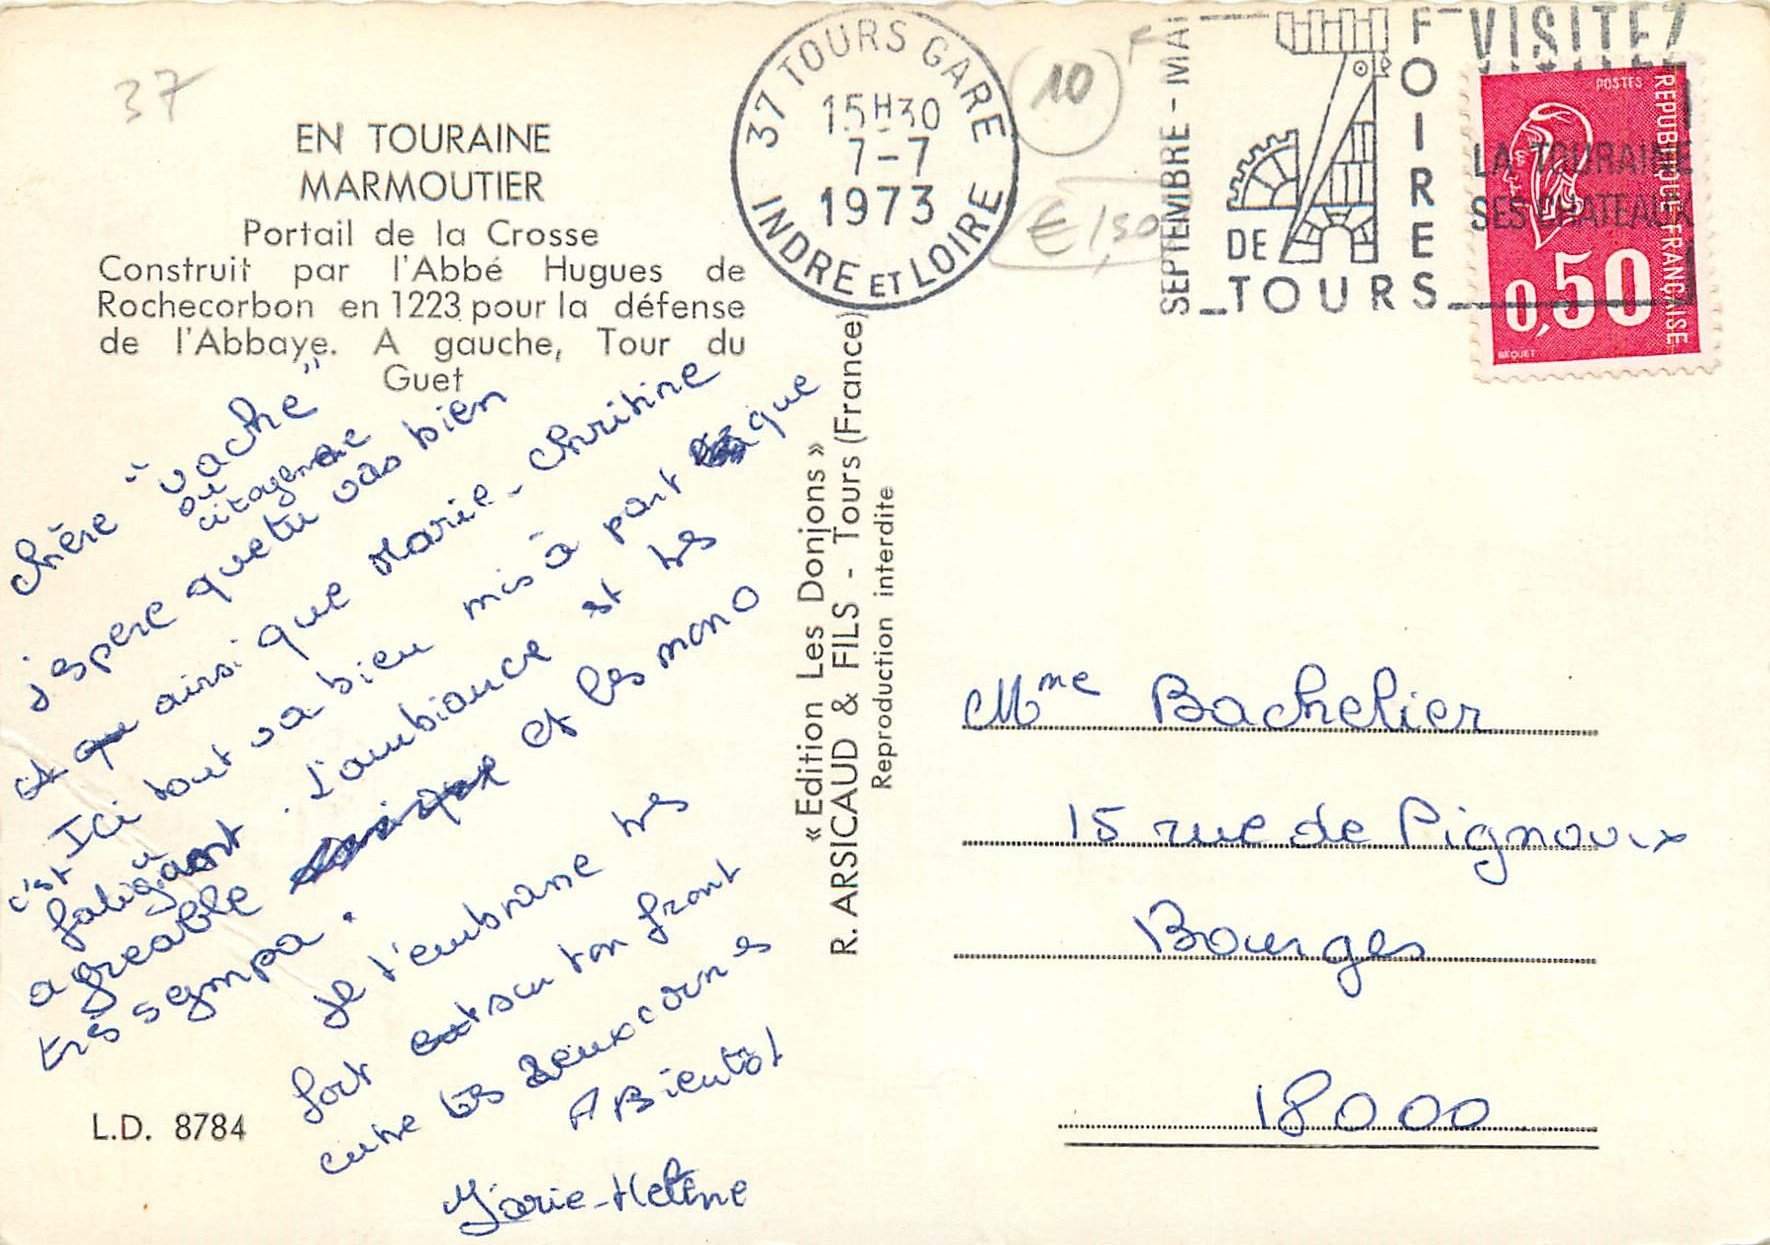 37
EN TOURAINE
MARMOUTIER
Portail de la Crosse
Construit par l'Abbé Hugues de
Rochecorbon en 1223 pour la défense
de l'Abbaye. A gauche, Tour du
Guet
Chère "vache"
ou
citoyenne
j'espere que tu vas bien
et ainsi que Marie-Christine
Ici tout va bien mis à part que
c'est fatigant. L'ambiance est très
agreable et les mono
très sympa.
Je t'embrasse très
fort sur ton front
entre tes deux cornes
A Bientôt
Marie-Helène
L.D. 8784
«Edition Les Donjons»
R. ARSICAUD & FILS - Tours (France)
Reproduction interdite
37 TOURS GARE
15H30
7-7
1973
INDRE ET LOIRE
10
€ 1,50
SEPTEMBRE - MAI
FOIRE
DE
TOURS
VISITEZ
LA TOURAINE
SES CHATEAUX
POSTES
REPUBLIQUE FRANÇAISE
0,50
BEQUET
Mme Bachelier
15 rue de Pignoux
Bourges
18000